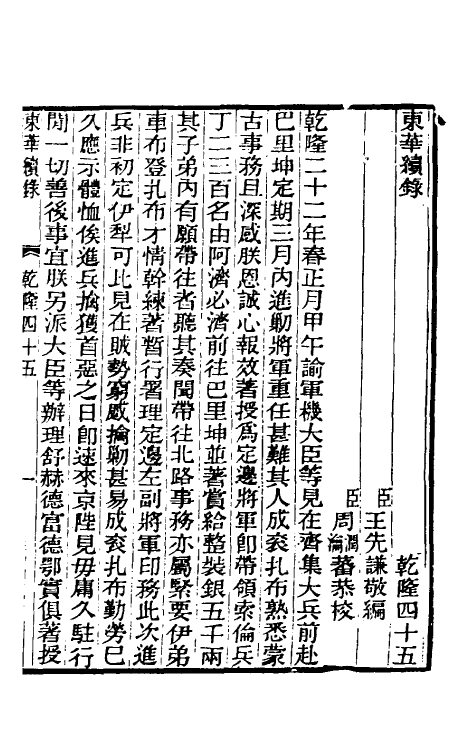 東華續錄
乾隆四十五
臣王先謙敬編
臣周潤蕃瀹蕃恭校
乾隆二十二年春正月甲午諭軍機大臣等見在齊集大兵前赴
巴里坤定期三月內進勦將軍重任甚難其人成袞扎布熟悉蒙
古事務且深感朕恩誠心報效著授爲定邊將軍卽帶領索倫兵
丁二三百名由阿濟必濟前往巴里坤並著賞給整裝銀五千兩
其子弟內有願帶往者聽其奏聞帶往北路事務亦屬緊要伊弟
車布登扎布才情幹練著暫行署理定邊左副將軍印務此次進
兵非初定伊犁可比見在賊勢窮蹙擒勦甚易成袞扎布勤勞已
久應示體恤俟進兵擒獲首惡之日卽速來京陛見毋庸久駐行
間一切善後事宜朕另派大臣等辦理舒赫德富德鄂實俱著授
東華續錄
乾隆四十五
一